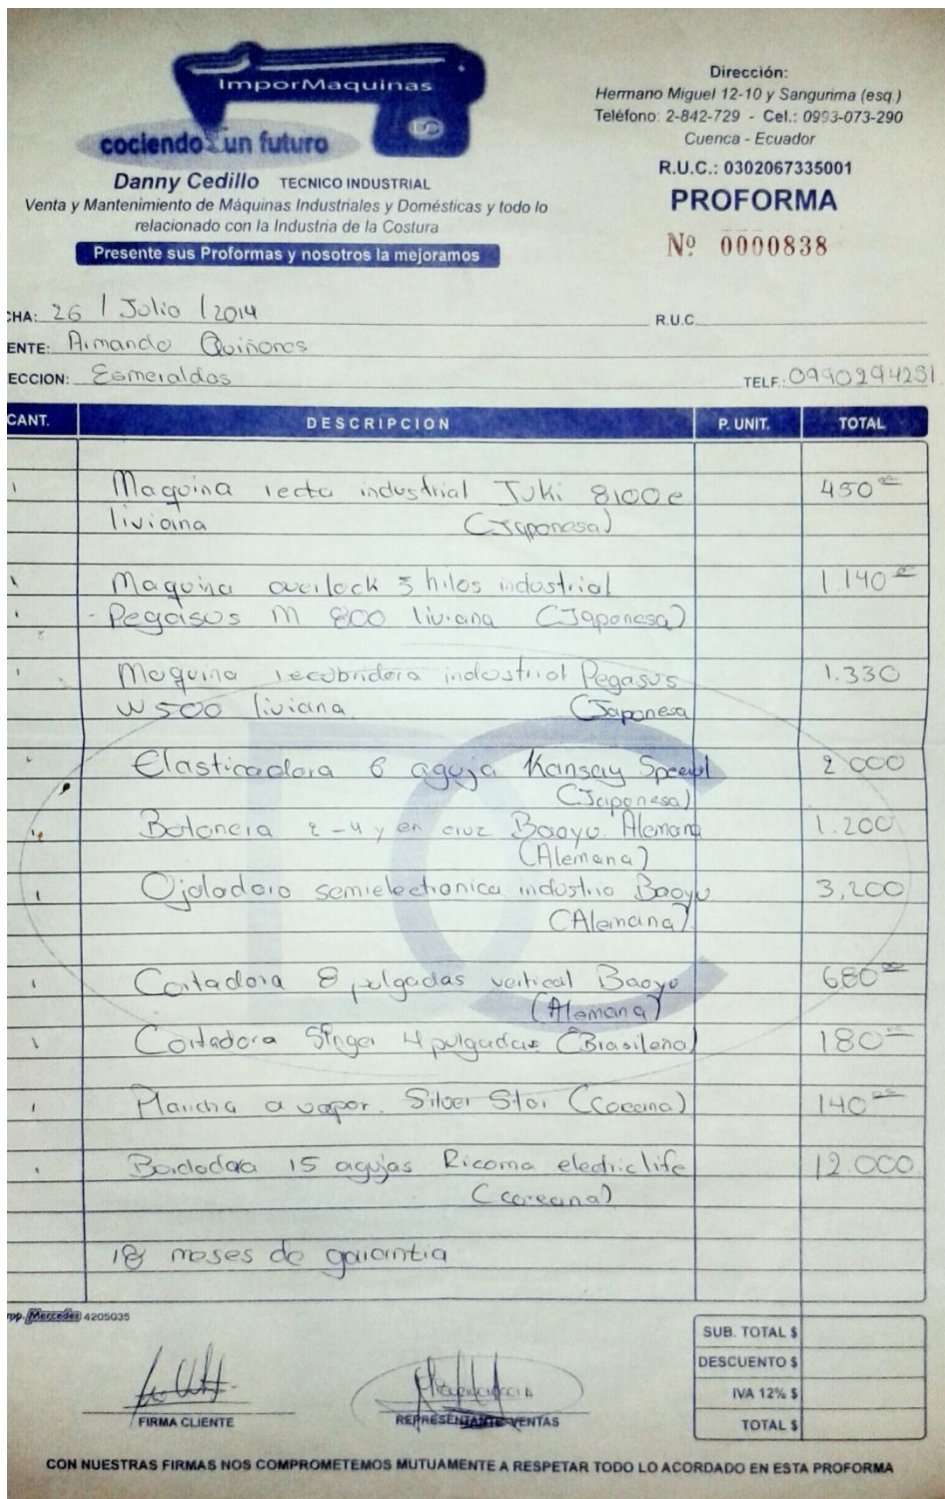 ImporMaquinas
cociendo un futuro
DC
Danny Cedillo TECNICO INDUSTRIAL
Venta y Mantenimiento de Máquinas Industriales y Domésticas y todo lo
relacionado con la Industria de la Costura
Presente sus Proformas y nosotros la mejoramos
Dirección:
Hermano Miguel 12-10 y Sangurima (esq.)
Teléfono: 2-842-729 - Cel.: 0993-073-290
Cuenca - Ecuador
R.U.C.: 0302067335001
PROFORMA
Nº 0000838
CHA: 26 / Julio / 2014 R.U.C.
ENTE: Armando Quiñones
ECCION: Esmeraldas TELF.: 0990294251
CANT. DESCRIPCION P. UNIT. TOTAL
1 Maquina recta industrial Juki 8100e 450 00
liviana (Japonesa)
1 Maquina overlock 5 hilos industrial 1.140 00
- Pegasus M 800 liviana (Japonesa)
1 Maquina recobridora industrial Pegasus 1.330
W500 liviana (Japonesa
Elasticadora 6 aguja Kansay Special 2.000
(Japonesa)
Botonera 2-4 y en cruz Baoyu Alemana 1.200
(Alemana)
1 Ojaladora semielectronica industria Baoyu 3,200
(Alemana)
1 Cortadora 8 pulgadas vertical Baoyu 680 00
(Alemana)
1 Cortadora Singer 4 pulgadas (Brasileña) 180 00
1 Plancha a vapor. Silver Star (Coreana) 140 00
1 Bordadora 15 agujas Ricoma electric life 12.000
(coreana)
18 meses de garantia
Imp. Mercedes 4205035
SUB. TOTAL $
DESCUENTO $
IVA 12% $
TOTAL $
FIRMA CLIENTE REPRESENTANTE VENTAS
CON NUESTRAS FIRMAS NOS COMPROMETEMOS MUTUAMENTE A RESPETAR TODO LO ACORDADO EN ESTA PROFORMA